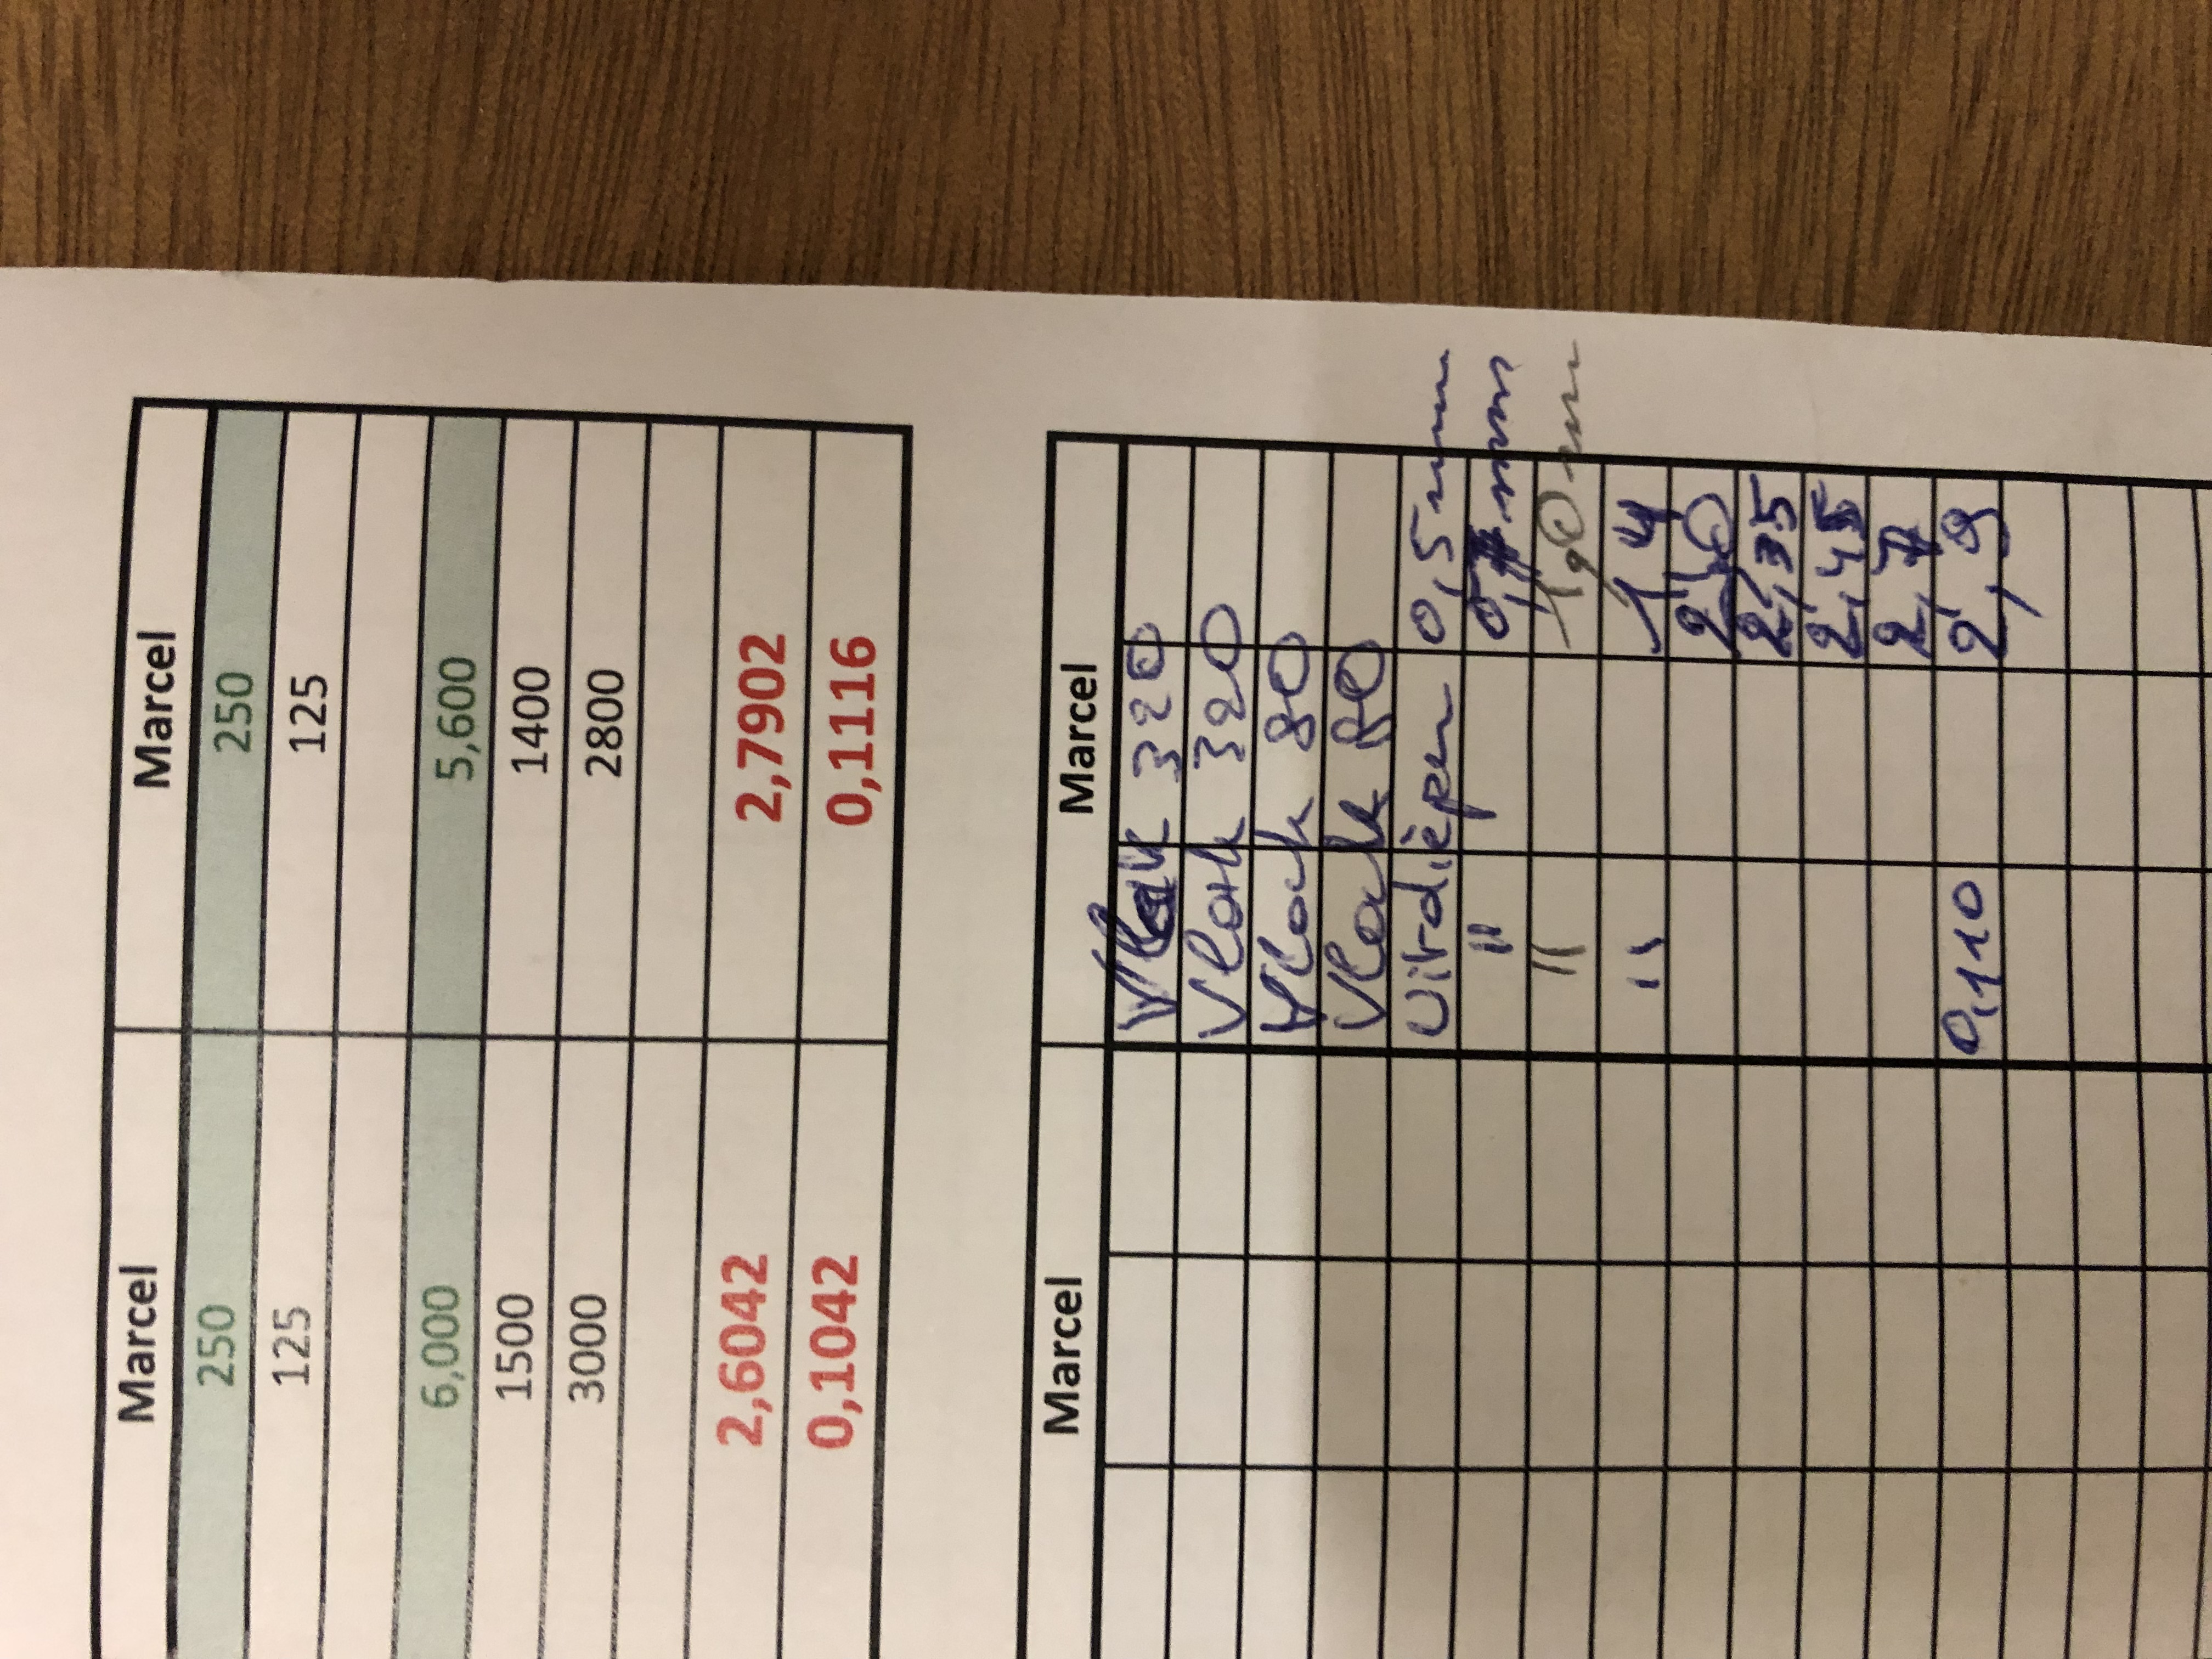 Marcel Marcel
250 250
125 125
6,000 5,600
1500 1400
3000 2800
2,6042 2,7902
0,1042 0,1116
Marcel Marcel
Vlak 320
Vlak 320
Vlak 80
Vlak 80
Uitdiepen 0,5mm
" 0,7mm
" 1,0mm
" 1,4
2,0
2,35
2,45
2,7
0,110 2,9